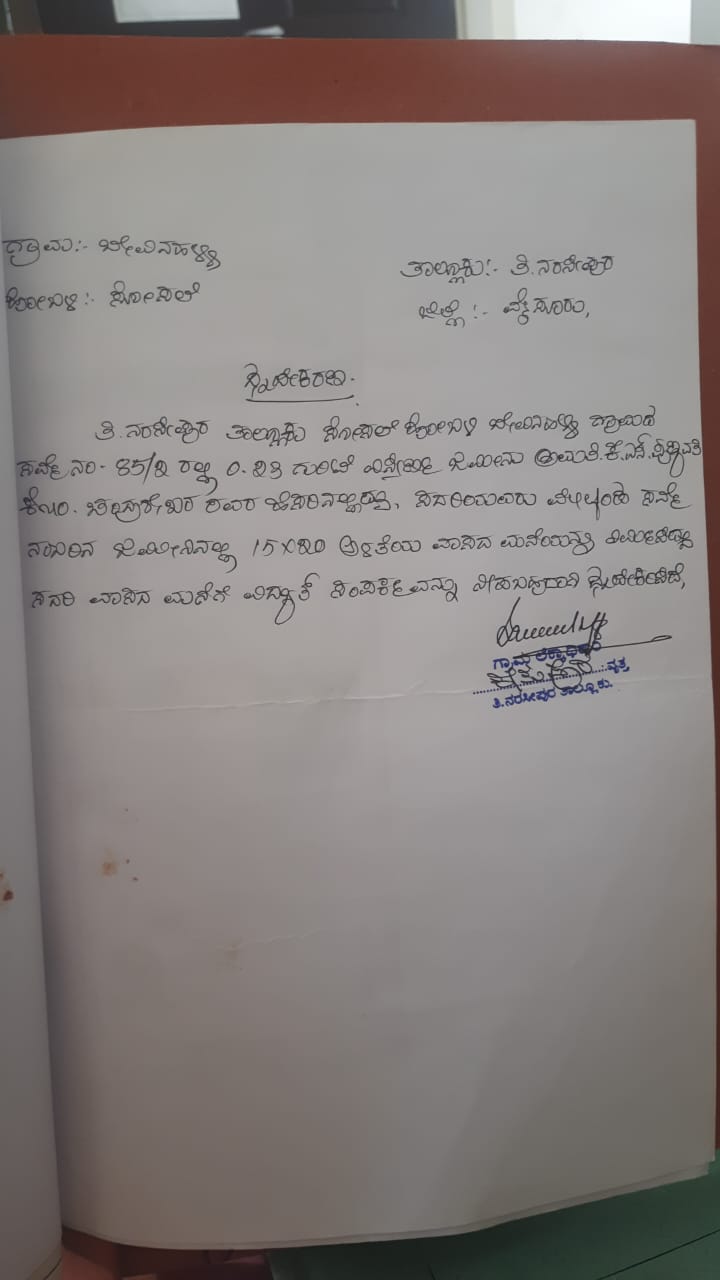 ಗ್ರಾಮ:- ಬೇವಿನಹಳ್ಳಿ
ತಾಲ್ಲೂಕು:- ತಿ.ನರಸೀಪುರ
ಹೋಬಳಿ:- ಸೋಸಲೆ
ಜಿಲ್ಲೆ:- ಮೈಸೂರು,
ದೃಢೀಕರಣ.
ತಿ.ನರಸೀಪುರ ತಾಲ್ಲೂಕು ಸೋಸಲೆ ಹೋಬಳಿ ಬೇವಿನಹಳ್ಳಿ ಗ್ರಾಮದ
ಸರ್ವೆ ನಂ- 85/2 ರಲ್ಲಿ 0.23 ಗುಂಟೆ ವಿಸ್ತೀರ್ಣ ಜಮೀನು ಶ್ರೀಮತಿ.ಕೆ.ಎನ್.
ಕೋಂ. ಚಂದ್ರಶೇಖರ ರವರ ಹೆಸರಿನಲ್ಲಿದ್ದು, ಸದರಿಯವರು ಮೇಲ್ಕಂಡ ಸರ್ವೆ
ನಂಬರಿನ ಜಮೀನಿನಲ್ಲಿ 15X20 ಅಳತೆಯ ವಾಸದ ಮನೆಯನ್ನು
ಸದರಿ ವಾಸದ ಮನೆಗೆ ವಿದ್ಯುತ್ ಸಂಪರ್ಕವನ್ನು ನೀಡಬಹುದಾಗಿ ದೃಢೀಕರಿಸಿದೆ,
ಗ್ರಾಮ ಲೆಕ್ಕಾಧಿಕಾರಿ
ವೃತ್ತ
ತಿ.ನರಸೀಪುರ ತಾಲ್ಲೂಕು.